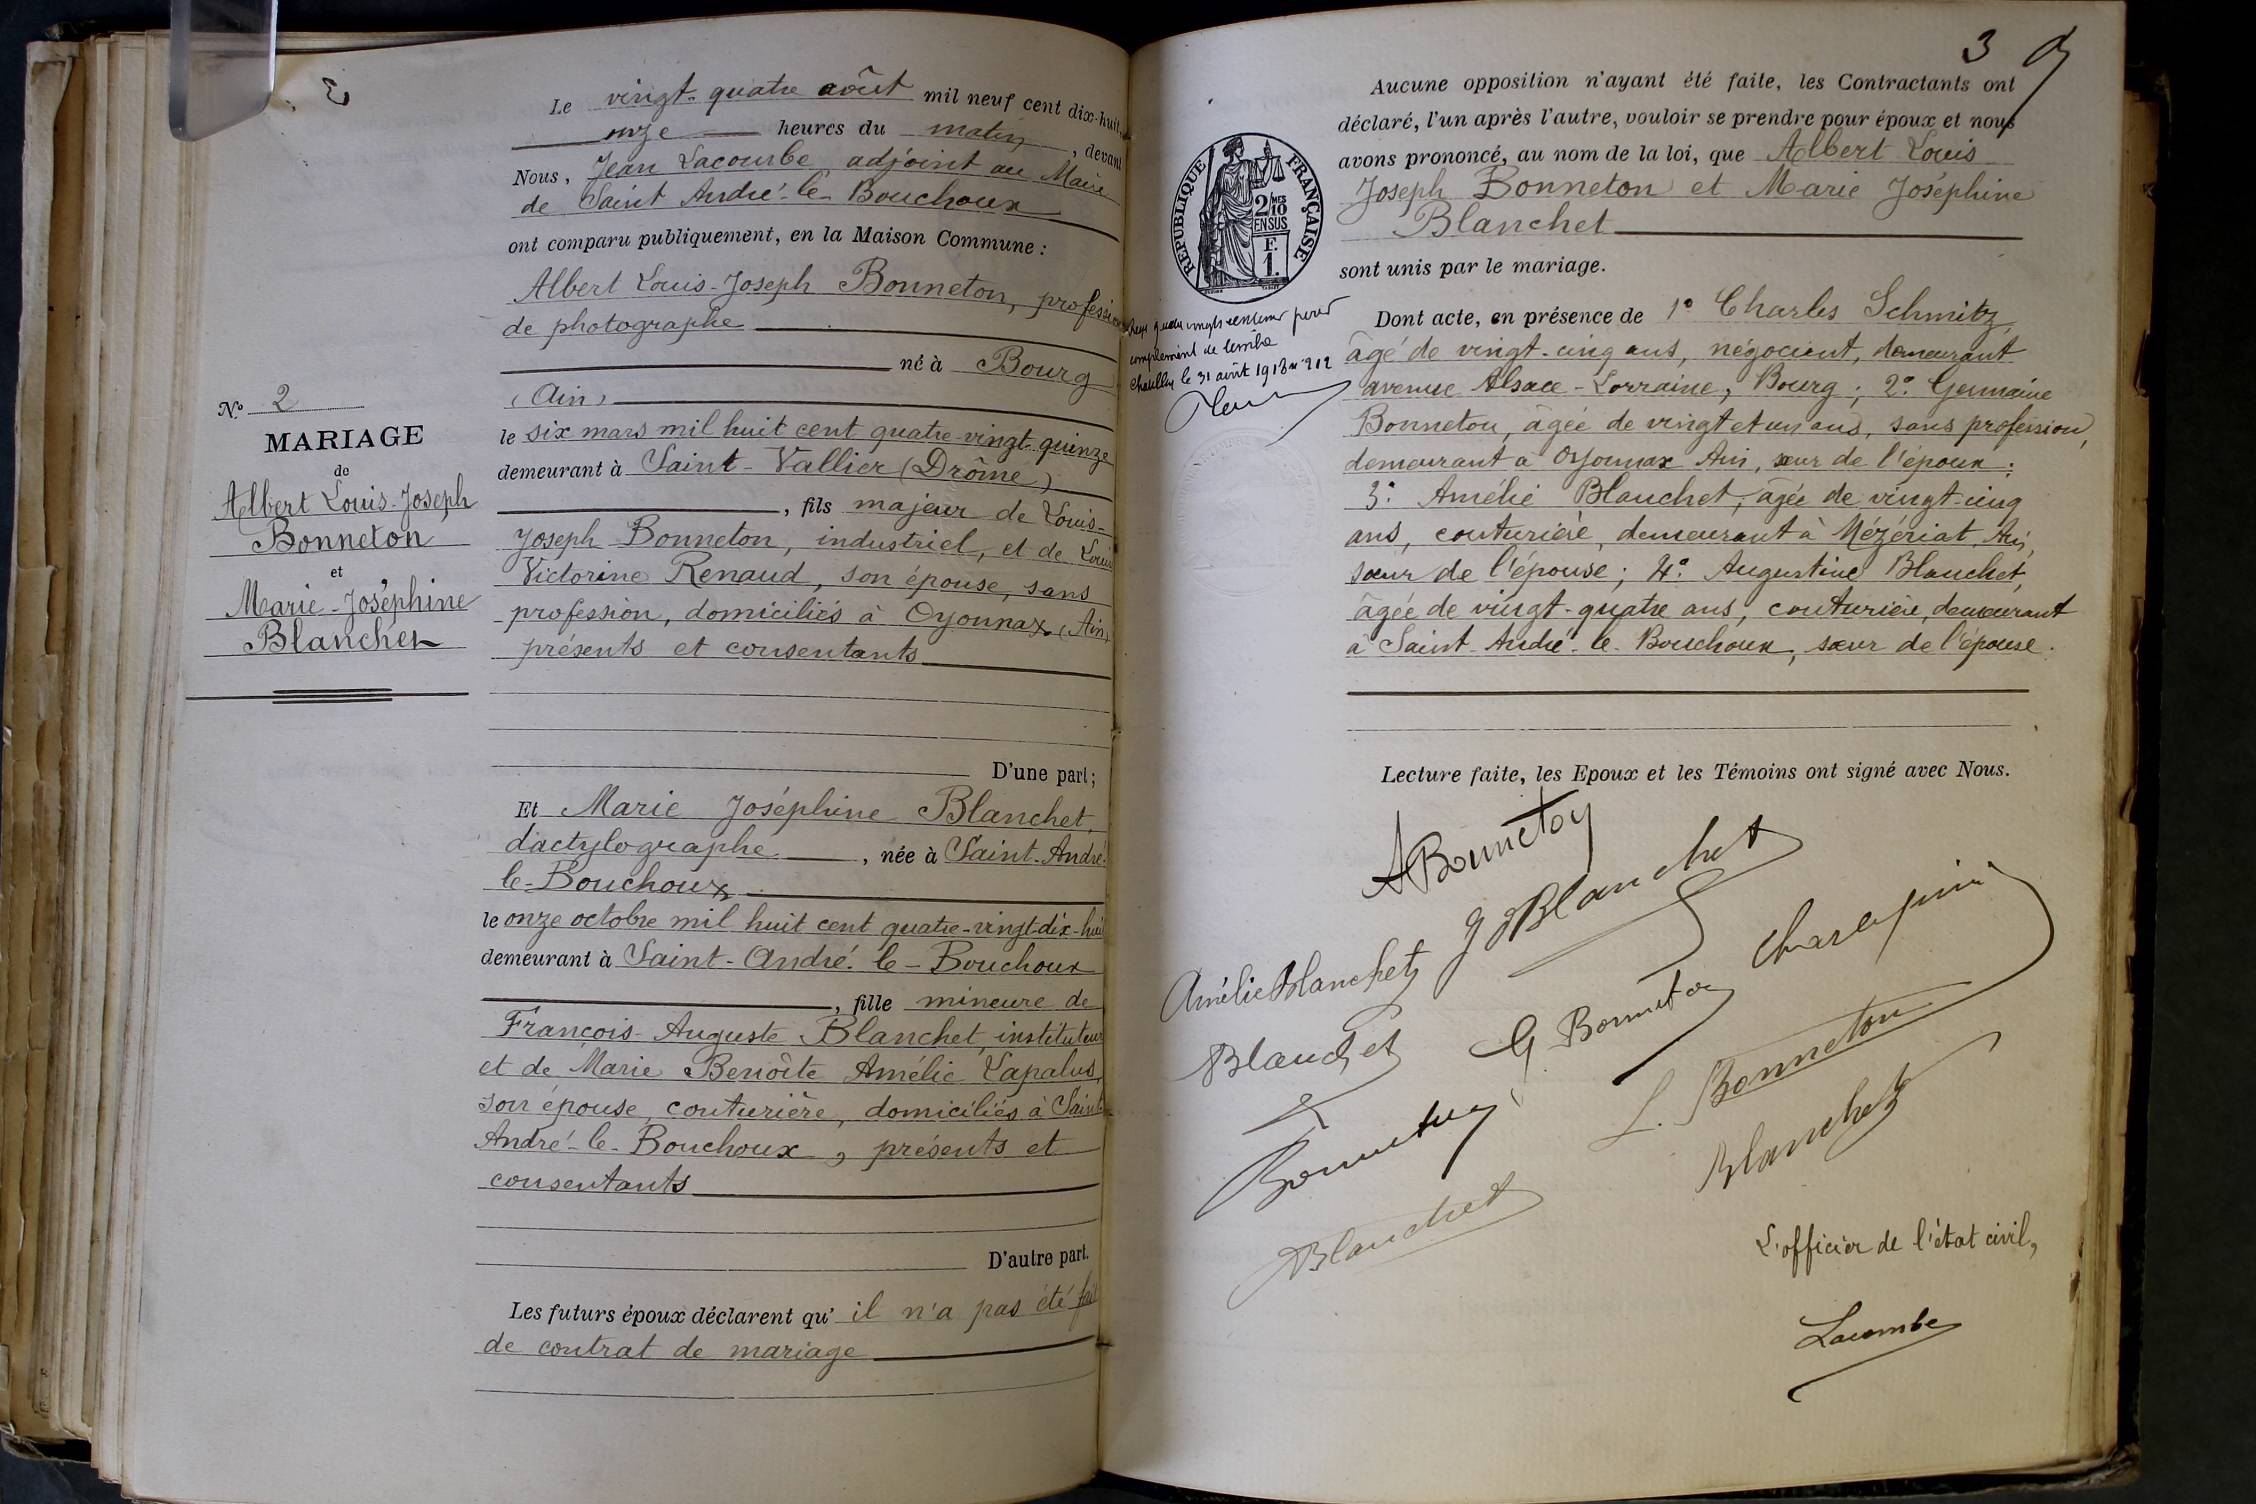 Le vingt-quatre août mil neuf cent dix-huit,
onze heures du matin, devant
Nous, Jean Lacombe, adjoint au Maire
de Saint André-le-Bouchoux
ont comparu publiquement, en la Maison Commune :
Albert Louis-Joseph Bonneton, profession
de photographe
né à Bourg
(Ain)
le six mars mil huit cent quatre-vingt-quinze
demeurant à Saint-Vallier (Drôme)
, fils majeur de Louis-
Joseph Bonneton, industriel, et de Louise
Victorine Renaud, son épouse, sans
profession, domiciliés à Oyonnax (Ain)
présents et consentants
D'une part;
Et Marie Joséphine Blanchet,
dactylographe, née à Saint-André-
le-Bouchoux
le onze octobre mil huit cent quatre-vingt-dix-huit
demeurant à Saint-André-le-Bouchoux
, fille mineure de
François-Auguste Blanchet, instituteur
et de Marie Benoîte Amélie Lapalus,
son épouse, couturière, domiciliés à Saint-
André-le-Bouchoux, présents et
consentants
D'autre part.
Les futurs époux déclarent qu'il n'a pas été fait
de contrat de mariage
N° 2
MARIAGE
de
Albert Louis-Joseph
Bonneton
et
Marie-Joséphine
Blanchet
3
Aucune opposition n'ayant été faite, les Contractants ont
déclaré, l'un après l'autre, vouloir se prendre pour époux et nous
avons prononcé, au nom de la loi, que Albert Louis
Joseph Bonneton et Marie Joséphine
Blanchet
sont unis par le mariage.
Dont acte, en présence de 1° Charles Schmitz,
âgé de vingt-cinq ans, négociant, demeurant
avenue Alsace-Lorraine, Bourg; 2° Germaine
Bonneton, âgée de vingt et un ans, sans profession,
demeurant à Oyonnax Ain, sœur de l'époux;
3° Amélie Blanchet, âgée de vingt-cinq
ans, couturière, demeurant à Mézériat, Ain,
sœur de l'épouse; 4° Augustine Blanchet,
âgée de vingt-quatre ans, couturière, demeurant
à Saint-André-le-Bouchoux, sœur de l'épouse.
Lecture faite, les Epoux et les Témoins ont signé avec Nous.
RÉPUBLIQUE FRANÇAISE
2/10MES
EN SUS
F.
1.
complément de timbre
le 31 août 1918 n° 212
ABonneton
Blanchet
Amélie Blanchet
Blanchet
G Bonneton
L. Bonneton
Bonneton
Blanchet
Blanchet
L'officier de l'état civil,
Lacombe